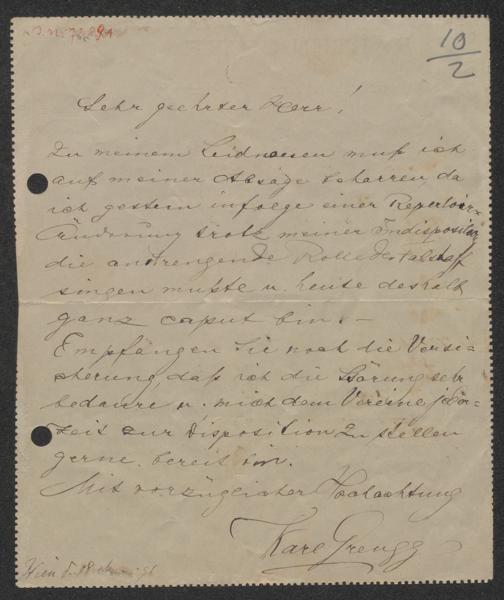 10/2
Sehr geehrter Herr!
Zu meinem Leidwesen muß ich
auf meiner Absage beharren da
ich gestern infolge einer Repertoir=
Änderung trotz meiner Indisposition
die anstrengende Rolle des Falstaff
singen mußte u. heute deshalb
ganz caput bin.–
Empfangen Sie noch die Versi=
cherung, daß ich die Störung sehr
bedaure u. mich dem Vereine
zur Disposition zu stellen
gerne bereit bin.
Mit vorzüglicher Hochachtung
Karl Grengg
Wien